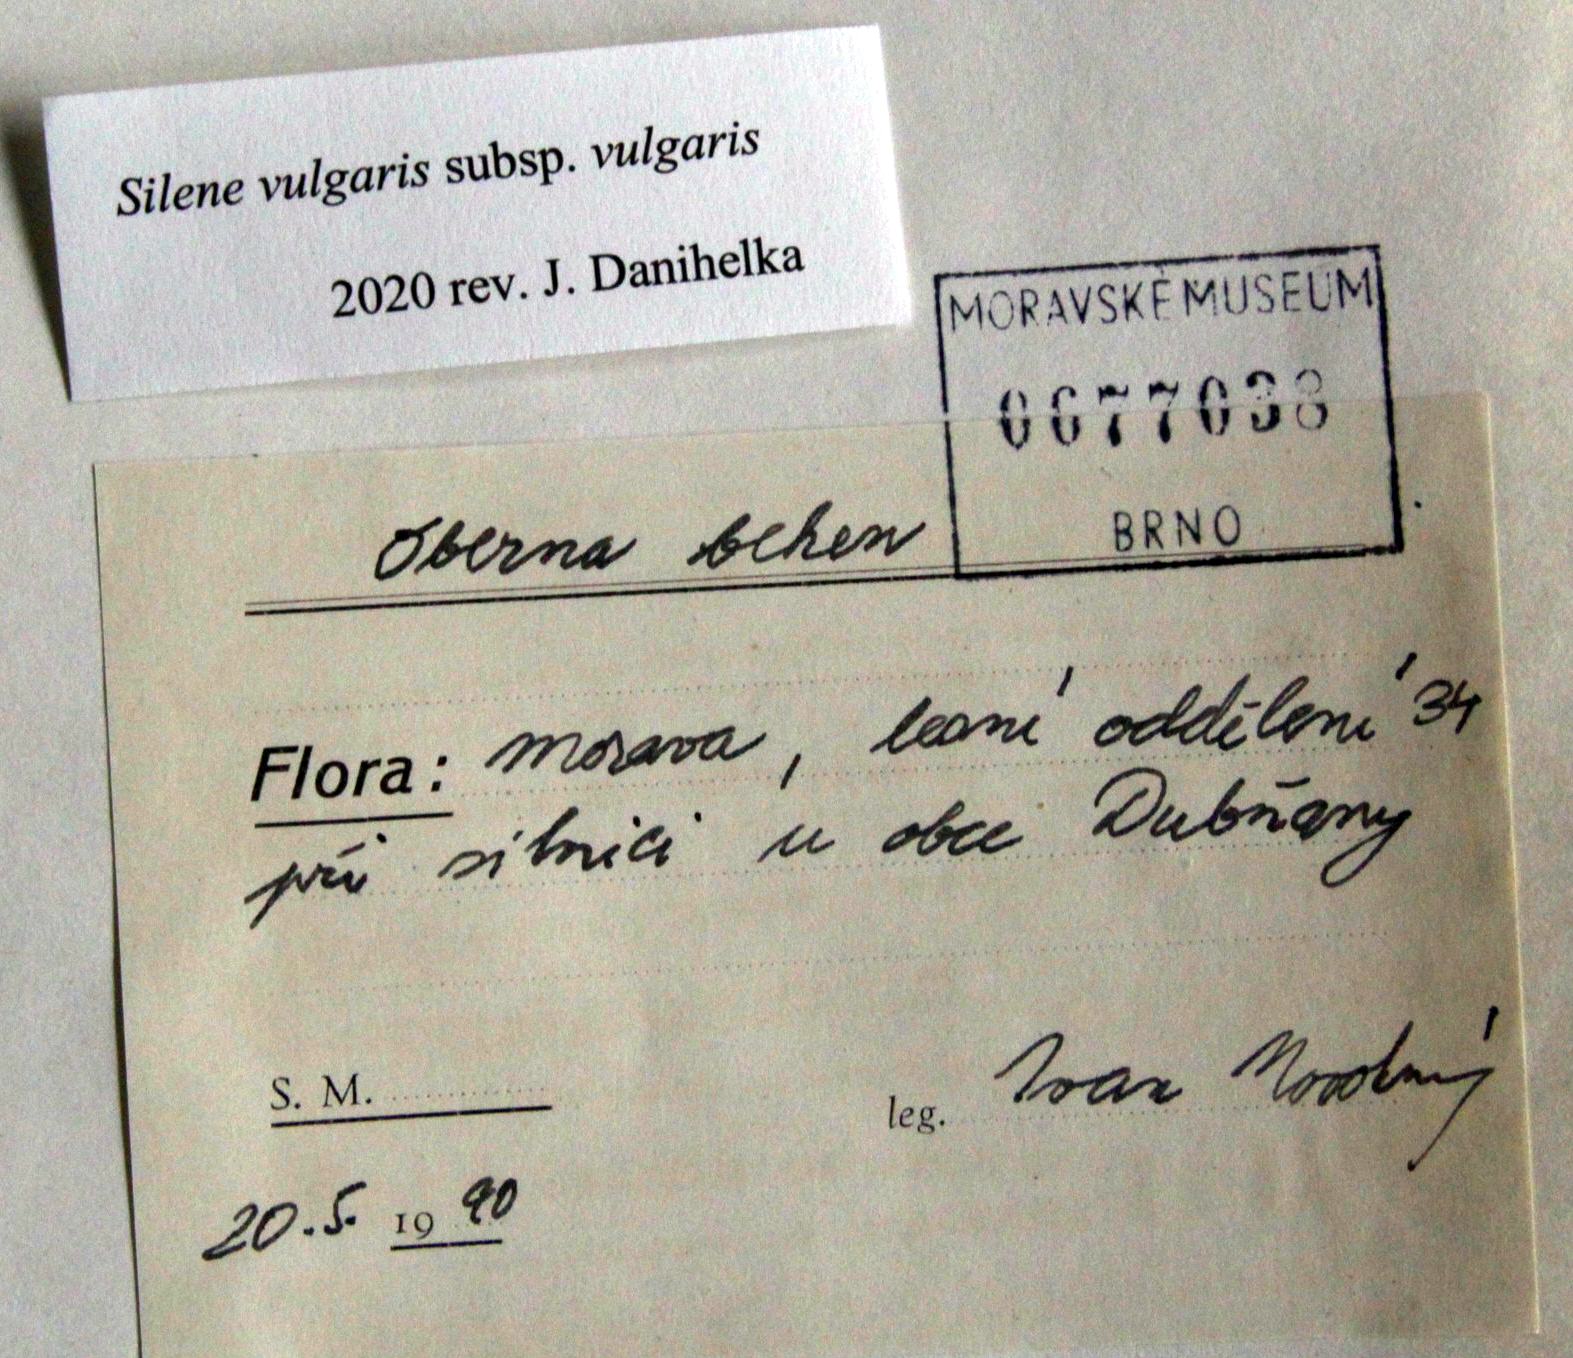 Silene vulgaris subsp. vulgaris
2020 rev. J. Danihelka
MORAVSKÉ MUSEUM
0077038
BRNO
Oberna behen
Flora: Morava, lesní oddělení 34
při silnici u obce Dubňany
S. M.
leg. Ivan Novotný
20.5. 1990